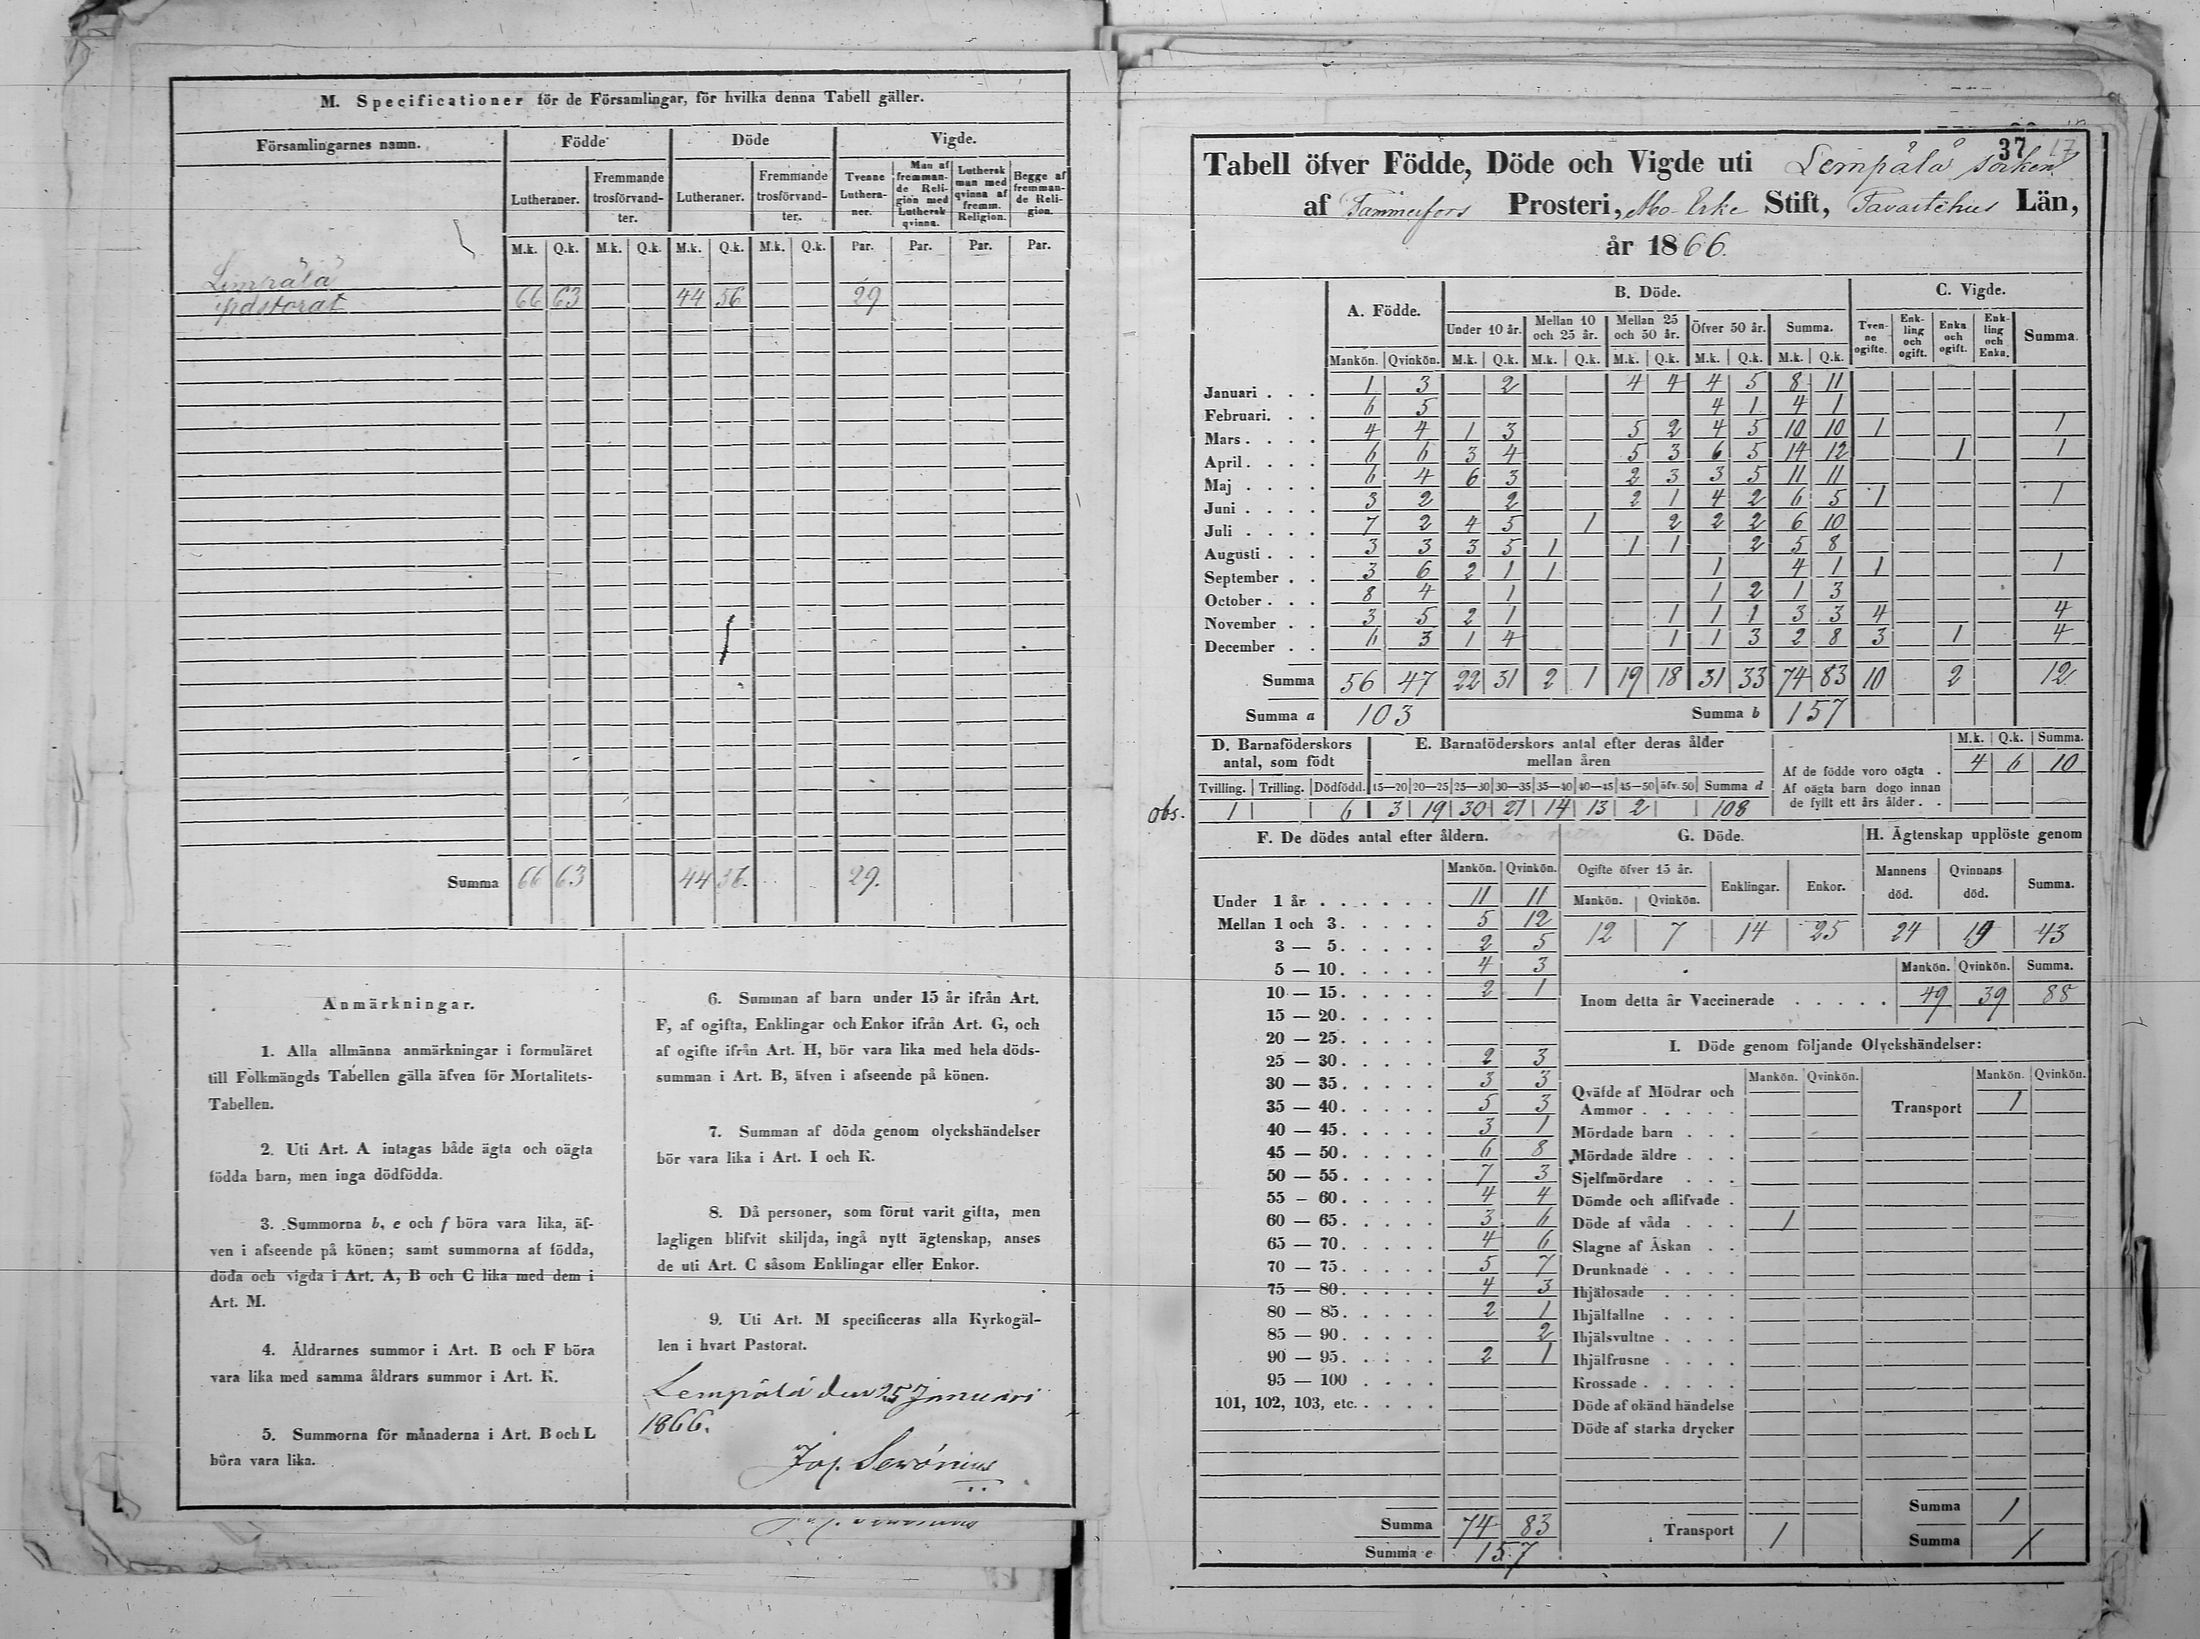 M. Specificationer för de Församlingar, för hvilka denna Tabell gäller.
Församlingarnes namn. Födde Döde Vigde.
Lutheraner. Fremmande trosförvandter. Lutheraner. Fremmande trosförvandter. Tvenne Lutheraner. Man af fremmande Religion med Luthersk qvinna. Luthersk man med qvinna af fremm. Religion. Begge af fremmande Religion.
M.k. Q.k. M.k. Q.k. M.k. Q.k. M.k. Q.k. Par. Par. Par. Par.
Lempälä
pastorat 66 63 44 56 29
Summa 66 63 44 56. 29.
Anmärkningar.
1. Alla allmänna anmärkningar i formuläret
till Folkmängds Tabellen gälla äfven för Mortalitets-
Tabellen.
2. Uti Art. A intagas både ägta och oägta
födda barn, men inga dödfödda.
3. Summorna b, e och f böra vara lika, äf-
ven i afseende på könen; samt summorna af födda,
döda och vigda i Art. A, B och C lika med dem i
Art. M.
4. Åldrarnes summor i Art. B och F böra
vara lika med samma åldrars summor i Art. K.
5. Summorna för månaderna i Art. B och L
böra vara lika.
6. Summan af barn under 15 år ifrån Art.
F, af ogifta, Enklingar och Enkor ifrån Art. G, och
af ogifte ifrån Art. H, bör vara lika med hela döds-
summan i Art. B, äfven i afseende på könen.
7. Summan af döda genom olyckshändelser
bör vara lika i Art. I och K.
8. Då personer, som förut varit gifta, men
lagligen blifvit skiljda, ingå nytt ägtenskap, anses
de uti Art. C såsom Enklingar eller Enkor.
9. Uti Art. M specificeras alla Kyrkogäl-
len i hvart Pastorat.
Lempälä den 25 Januari
1866.
37 17
Tabell öfver Födde, Döde och Vigde uti Lempälä socken
af Tammerfors Prosteri, Åbo Erke Stift, Tavastehus Län,
år 1866.
A. Födde. B. Döde. C. Vigde.
Under 10 år. Mellan 10 och 25 år. Mellan 25 och 50 år. Öfver 50 år. Summa. Tvenne ogifte. Enkling och ogift. Enka och ogift. Enkling och Enka. Summa.
Mankön. Qvinkön. M.k. Q.k. M.k. Q.k. M.k. Q.k. M.k. Q.k. M.k. Q.k.
Januari . . . 1 3 2 4 4 4 5 8 11
Februari. . . 6 5 4 1 4 1
Mars . . . . 4 4 1 3 5 2 4 5 10 10 1 1
April . . . . 6 6 3 4 5 3 6 5 14 12 1 1
Maj . . . . 6 4 6 3 2 3 3 5 11 11
Juni . . . . 3 2 2 2 1 4 2 6 5 1 1
Juli . . . . 7 2 4 5 1 2 2 2 6 10
Augusti . . . 3 3 3 5 1 1 1 2 5 8
September . . 3 6 2 1 1 1 4 1 1 1
October . . . 8 4 1 1 2 1 3
November . . 3 5 2 1 1 1 1 3 3 4 4
December . . 6 3 1 4 1 1 3 2 8 3 1 4
Summa 56 47 22 31 2 1 19 18 31 33 74 83 10 2 12
Summa a 103 Summa b 157
D. Barnaföderskors antal, som födt
E. Barnaföderskors antal efter deras ålder mellan åren
Tvilling. Trilling. Dödfödd. 15—20 20—25 25—30 30—35 35—40 40—45 45—50 öfv. 50 Summa d
obs. 1 6 3 19 30 21 14 13 2 108
M.k. Q.k. Summa.
Af de födde voro oägta . 4 6 10
Af oägta barn dogo innan
de fyllt ett års ålder . .
F. De dödes antal efter åldern.
Mankön. Qvinkön.
Under 1 år . . . . . . 11 11
Mellan 1 och 3 . . . . . 5 12
3 — 5 . . . . . 2 5
5 — 10 . . . . . 4 3
10 — 15 . . . . . 2 1
15 — 20 . . . . .
20 — 25 . . . . .
25 — 30 . . . . . 2 3
30 — 35 . . . . . 3 3
35 — 40 . . . . . 5 3
40 — 45 . . . . . 3 1
45 — 50 . . . . . 6 8
50 — 55 . . . . . 7 3
55 — 60 . . . . . 4 4
60 — 65 . . . . . 3 6
65 — 70 . . . . . 4 6
70 — 75 . . . . . 5 7
75 — 80 . . . . . 4 3
80 — 85 . . . . . 2 1
85 — 90 . . . . . 2
90 — 95 . . . . . 2 1
95 — 100 . . . .
101, 102, 103, etc. . . . .
Summa 74 83
Summa e 157
G. Döde.
Ogifte öfver 15 år. Enklingar. Enkor.
Mankön. Qvinkön.
12 7 14 25
H. Ägtenskap upplöste genom
Mannens död. Qvinnans död. Summa.
24 19 43
Mankön. Qvinkön. Summa.
Inom detta år Vaccinerade . . . . . 49 39 88
I. Döde genom följande Olyckshändelser:
Mankön. Qvinkön. Mankön. Qvinkön.
Qväfde af Mödrar och
Ammor . . . . . Transport 1
Mördade barn . . .
Mördade äldre . . .
Sjelfmördare . . .
Dömde och aflifvade .
Döde af våda . . . 1
Slagne af Åskan . .
Drunknade . . . .
Ihjälosade . . . .
Ihjälfallne . . . .
Ihjälsvultne . . . .
Ihjälfrusne . . . .
Krossade . . . . .
Döde af okänd händelse
Döde af starka drycker
Summa 1
Transport 1 Summa 1